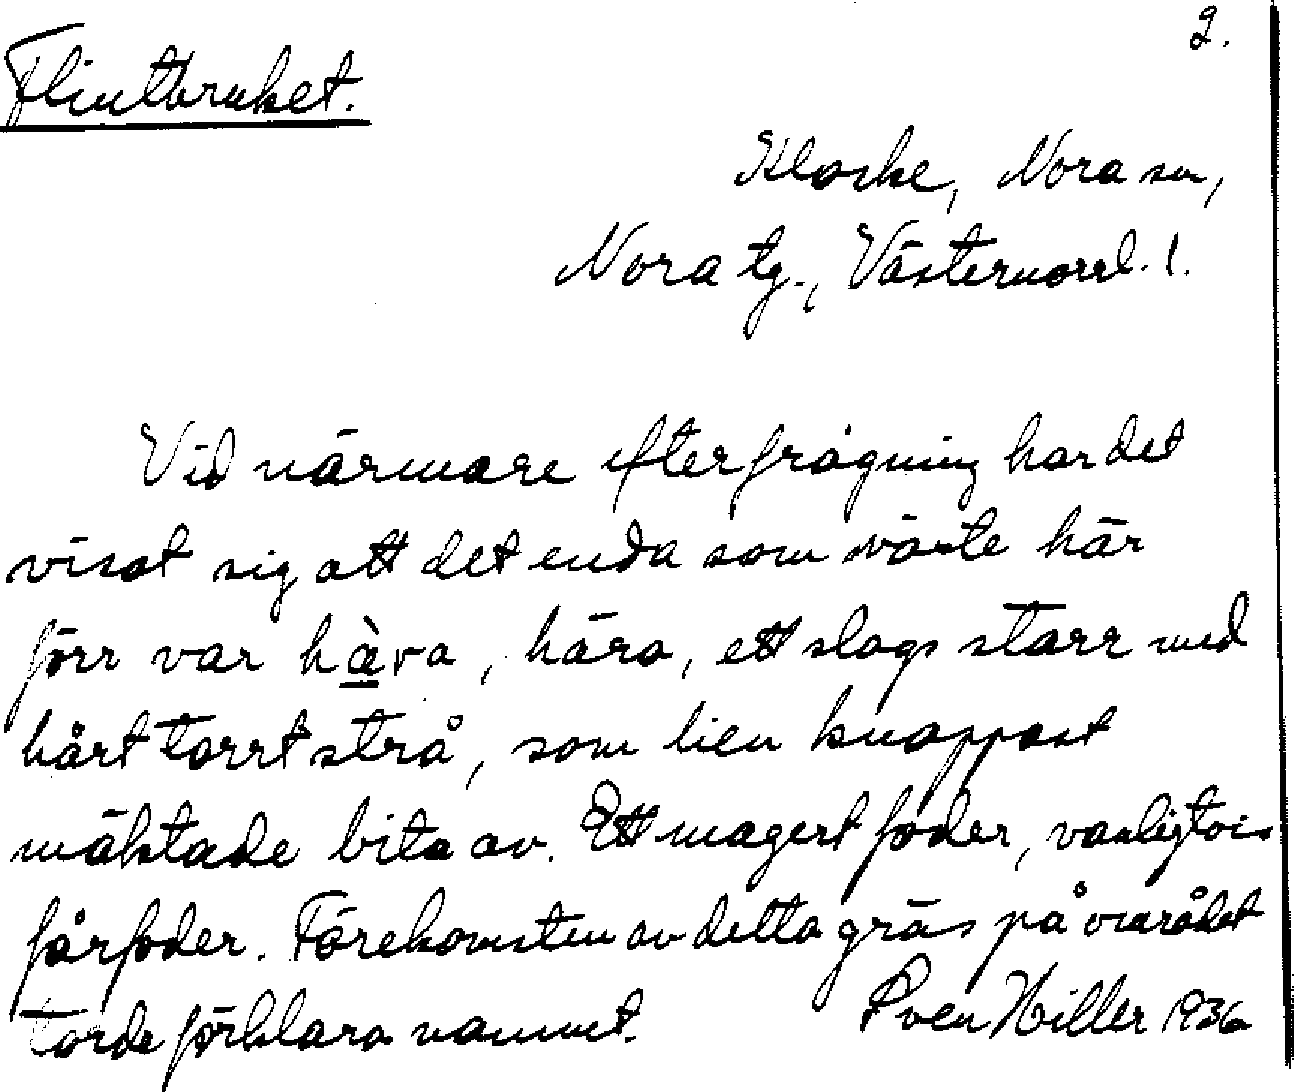 2.
Flintbruket.
Klocke, Nora sn,
Nora tg., Västernorrl. l.
Vid närmare efterfrågning har det
visat sig att det enda som växte här
förr var hàva, hära, ett slags starr med
hårt torrt strå, som lien knappast
mäktade bita av. Ett magert foder, vanligtvis
fårfoder. Förekomsten av detta gräs på området
torde förklara namnet. Sven Hiller 1936